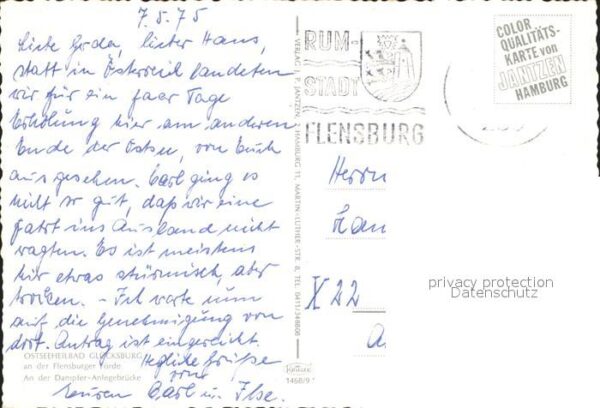 7.5.75
Liebe Gerda, lieber Hans,
statt in Österreich landeten
wir für ein paar Tage
Erholung hier am anderen
Ende der Ostsee, von Euch
aus gesehen. Carl ging es
nicht so gut, daß wir eine
Fahrt ins Ausland nicht
wagten. Es ist meistens
hier etwas stürmisch, aber
trocken. - Ich warte nun
auf die Genehmigung von
dort. Antrag ist eingereicht.
Herzliche Grüße
Carl u. Ilse.
OSTSEEHEILBAD GLÜCKSBURG
an der Flensburger Förde
An der Dampfer-Anlegebrücke
VERLAG J. P. JANTZEN, HAMBURG 11, MARTIN-LUTHER-STR. 8, TEL. 0411/348808
1468/9
RUM-
STADT
FLENSBURG
COLOR
QUALITÄTS-
KARTE von
JANTZEN
HAMBURG
Herrn
Han
X 22
privacy protection
Datenschutz